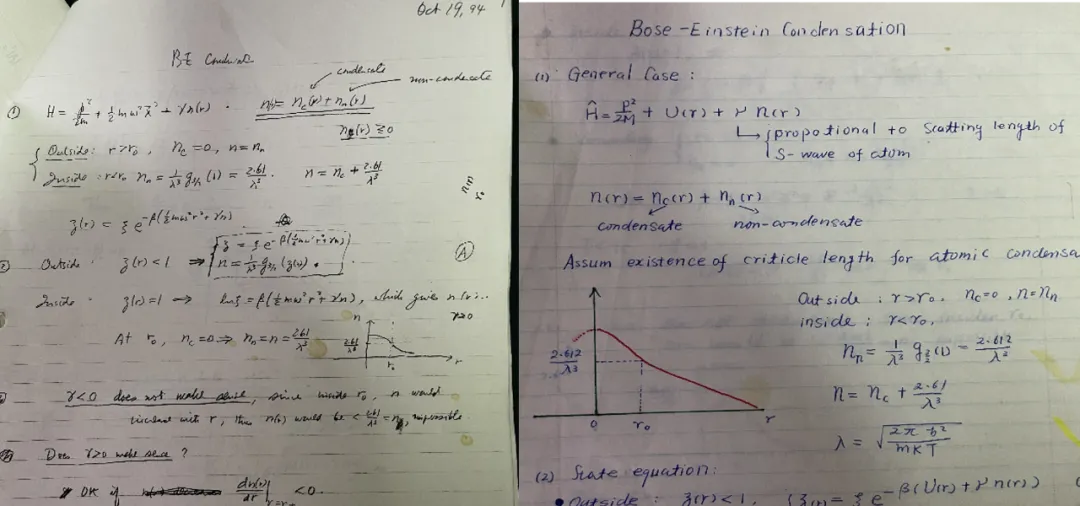 Oct 19, 94
BE
condensate
non-condensate
① H = p²/2m + ½mω²x² + γn(r) . n(r) = n_c(r) + n_n(r)
n_c(r) ≥ 0
Outside: r > r₀, n_c = 0, n = n_n
Inside: r<r₀ n_n = 1/λ³ g_{3/2}(1) = 2.61/λ³. n = n_c + 2.61/λ³
ʒ(r) = ξ e^{-β(½mω²r² + γn)}
ʒ = ξ e^{-β(½mω²r² + γn)}
② Outside ʒ(r) < 1 ⇒ n = 1/λ³ g_{3/2}(ʒ(r)) .
Ⓐ
Inside ʒ(r) = 1 → ln ξ = β(½mω²r² + γn), which gives n(r)..
γ>0
At r₀, n_c = 0 ⇒ n_n = n = 2.61/λ³
n
2.61/λ³
r₀
r
γ<0 does not make sense, since inside r₀, n would
increase with r, thus n(r) would be < 2.61/λ³ = n_n, impossible
Does γ>0 make sense ?
OK if dn(r)/dr < 0.
Bose-Einstein Condensation
(1) General Case :
Ĥ = p²/2M + U(r) + γ n(r)
propotional to Scatting length of
S-wave of atom
n(r) = n_c(r) + n_n(r)
condensate non-condensate
Assum existence of criticle length for atomic condensa
Outside : r>r₀. n_c=0, n=n_n
inside : r<r₀.
n_n = 1/λ³ g_{3/2}(1) = 2.612/λ³
n = n_c + 2.61/λ³
λ = √(2πħ²/mKT)
2.612/λ³
0 r₀ r
(2) State equation:
• Outside : ʒ(r)<1, ʒ(r) = ξ e^{-β(U(r)+γn(r))}